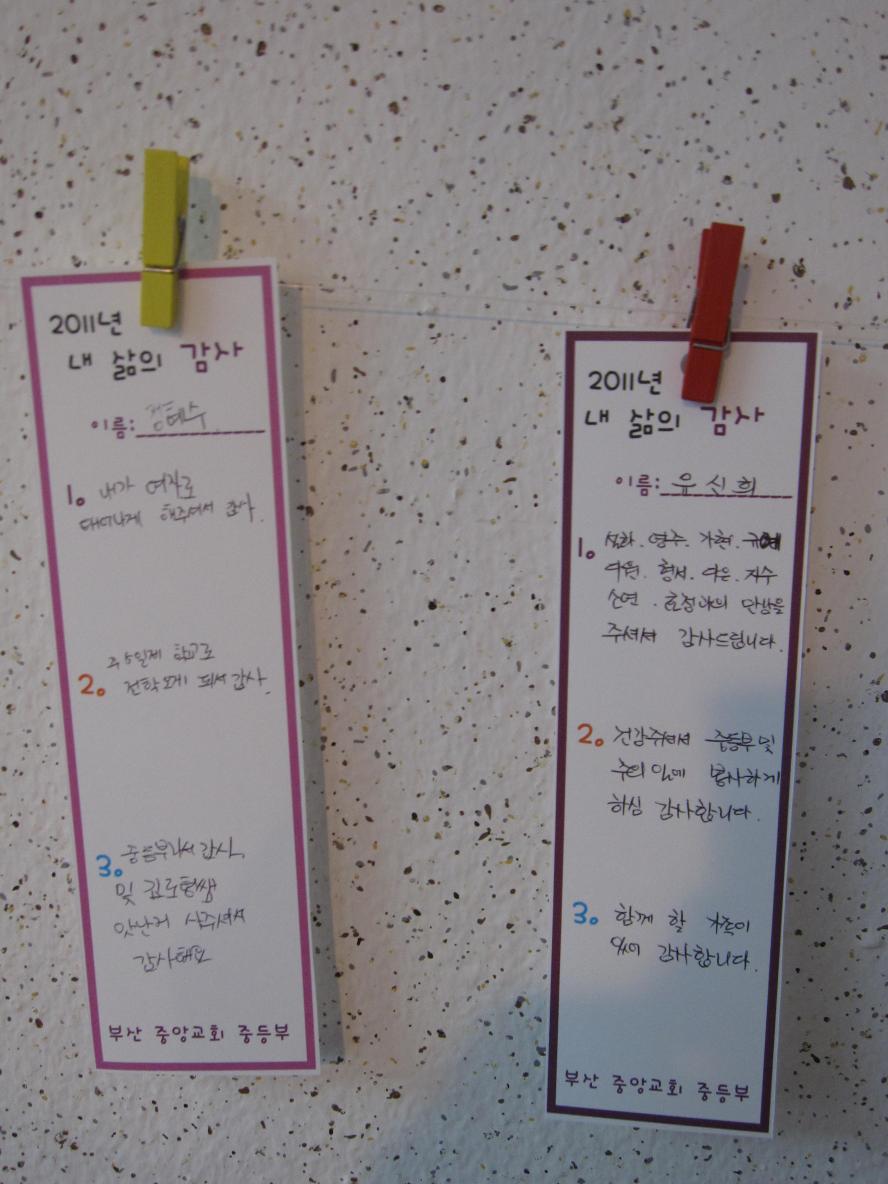 2011년
내 삶의 감사
이름: 정혜수
1. 내가 여자로
태어나게 해주셔서 감사.
2. 주5일제 학교로
전학오게 되서 감사.
3. 중등부라서 감사,
및 쌤
맛난거 사주셔서
감사해요
부산 중앙교회 중등부
2011년
내 삶의 감사
이름: 유신희
1. 설화. 영주. 가현. 규예
다원. 형서. 다은. 지수
소연. 효정이의 만남을
주셔서 감사드립니다.
2. 건강주셔서 중등부 및
주의 일에 봉사하게
하심 감사합니다.
3. 함께 할 가족이
있어 감사합니다.
부산 중앙교회 중등부